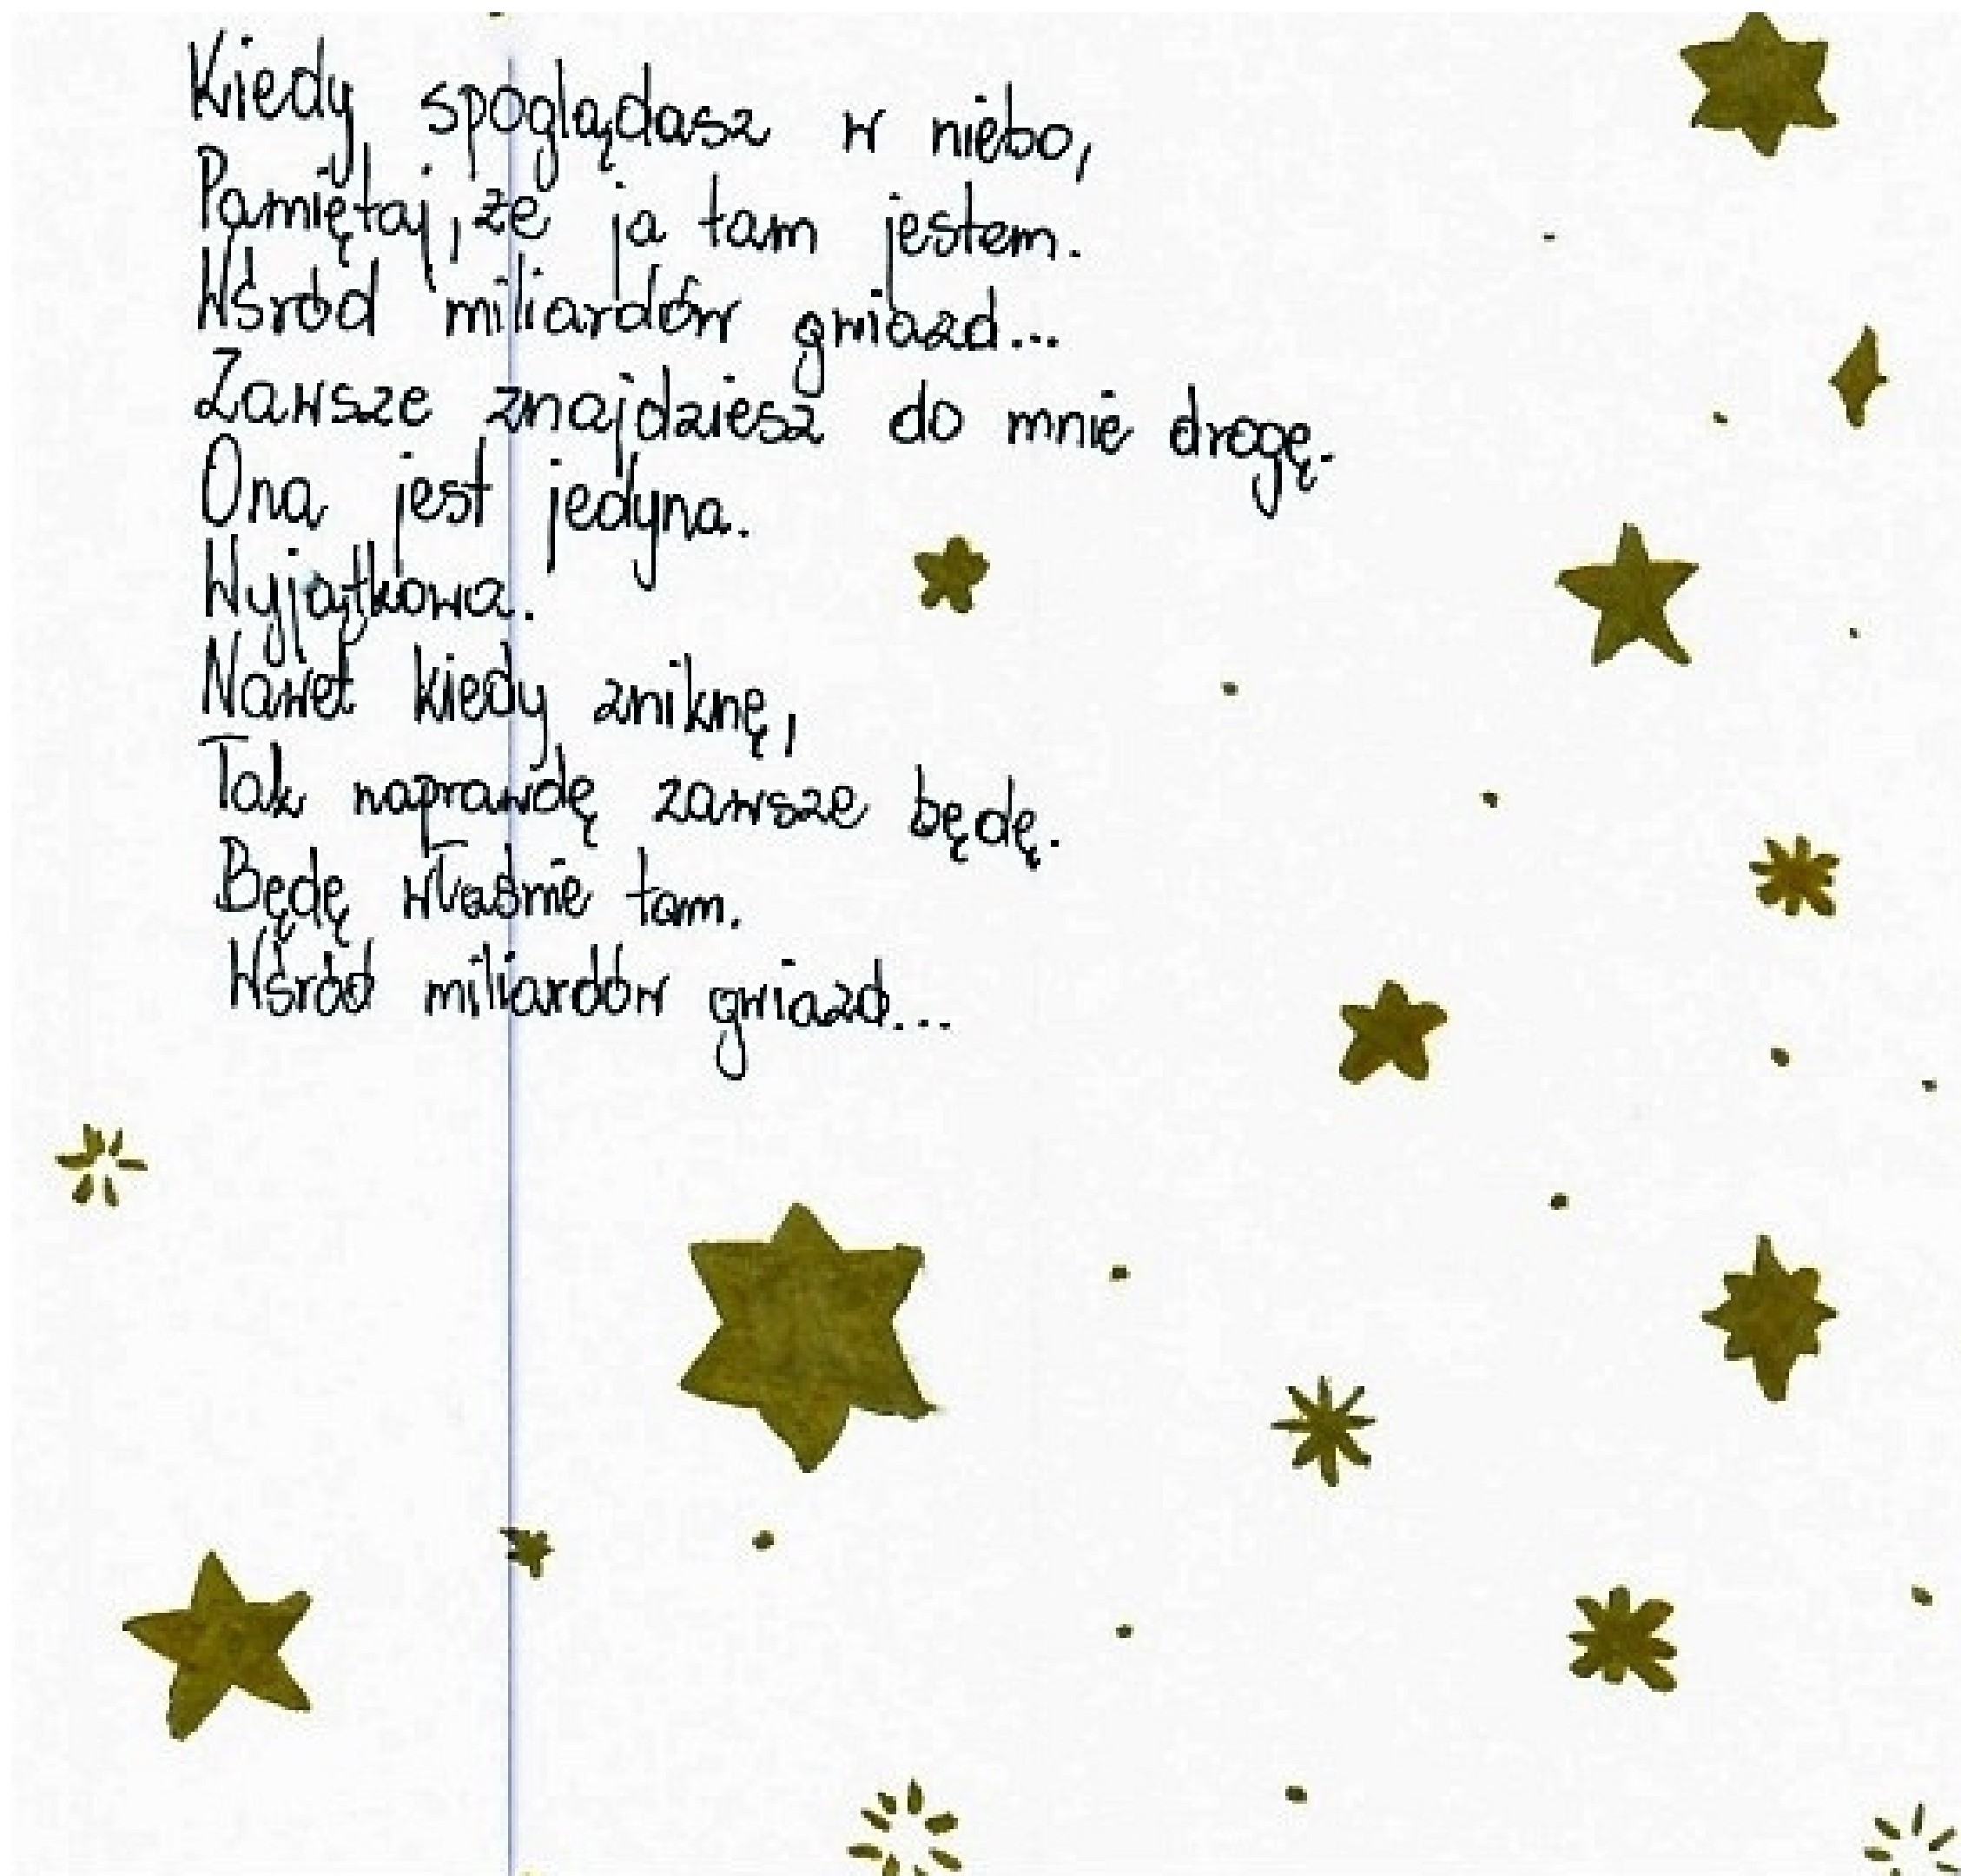 Kiedy spoglądasz w niebo,
Pamiętaj, że ja tam jestem.
Wśród miliardów gwiazd...
Zawsze znajdziesz do mnie drogę.
Ona jest jedyna.
Wyjątkowa.
Nawet kiedy zniknę,
Tak naprawdę zawsze będę.
Będę właśnie tam.
Wśród miliardów gwiazd...